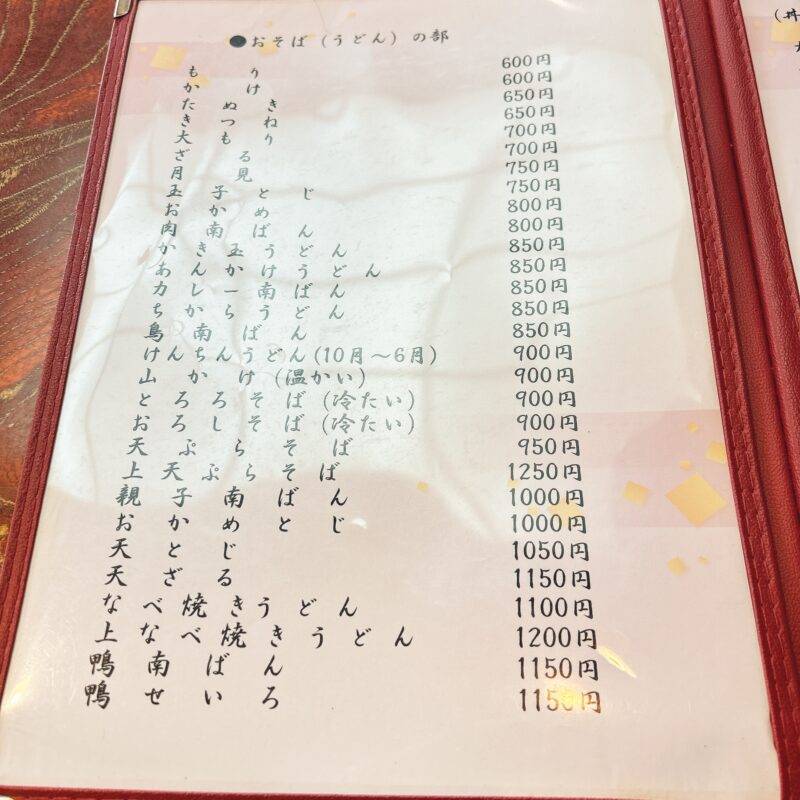 ●おそば(うどん)の部
もり 600円
かけ 600円
たぬき 650円
きつね 650円
大もり 700円
ざる 700円
月見 750円
玉子とじ 750円
おかめ 800円
肉南ばん 800円
かき玉うどん 850円
あんかけうどん 850円
カレー南ばん 850円
ちからうどん 850円
鳥南ばん 850円
けんちんうどん(10月〜6月) 900円
山かけ(温かい) 900円
とろろそば(冷たい) 900円
おろしそば(冷たい) 900円
天ぷらそば 950円
上天ぷらそば 1250円
親子南ばん 1000円
おかめとじ 1000円
天とじ 1050円
天ざる 1150円
なべ焼きうどん 1100円
上なべ焼きうどん 1200円
鴨南ばん 1150円
鴨せいろ 1150円